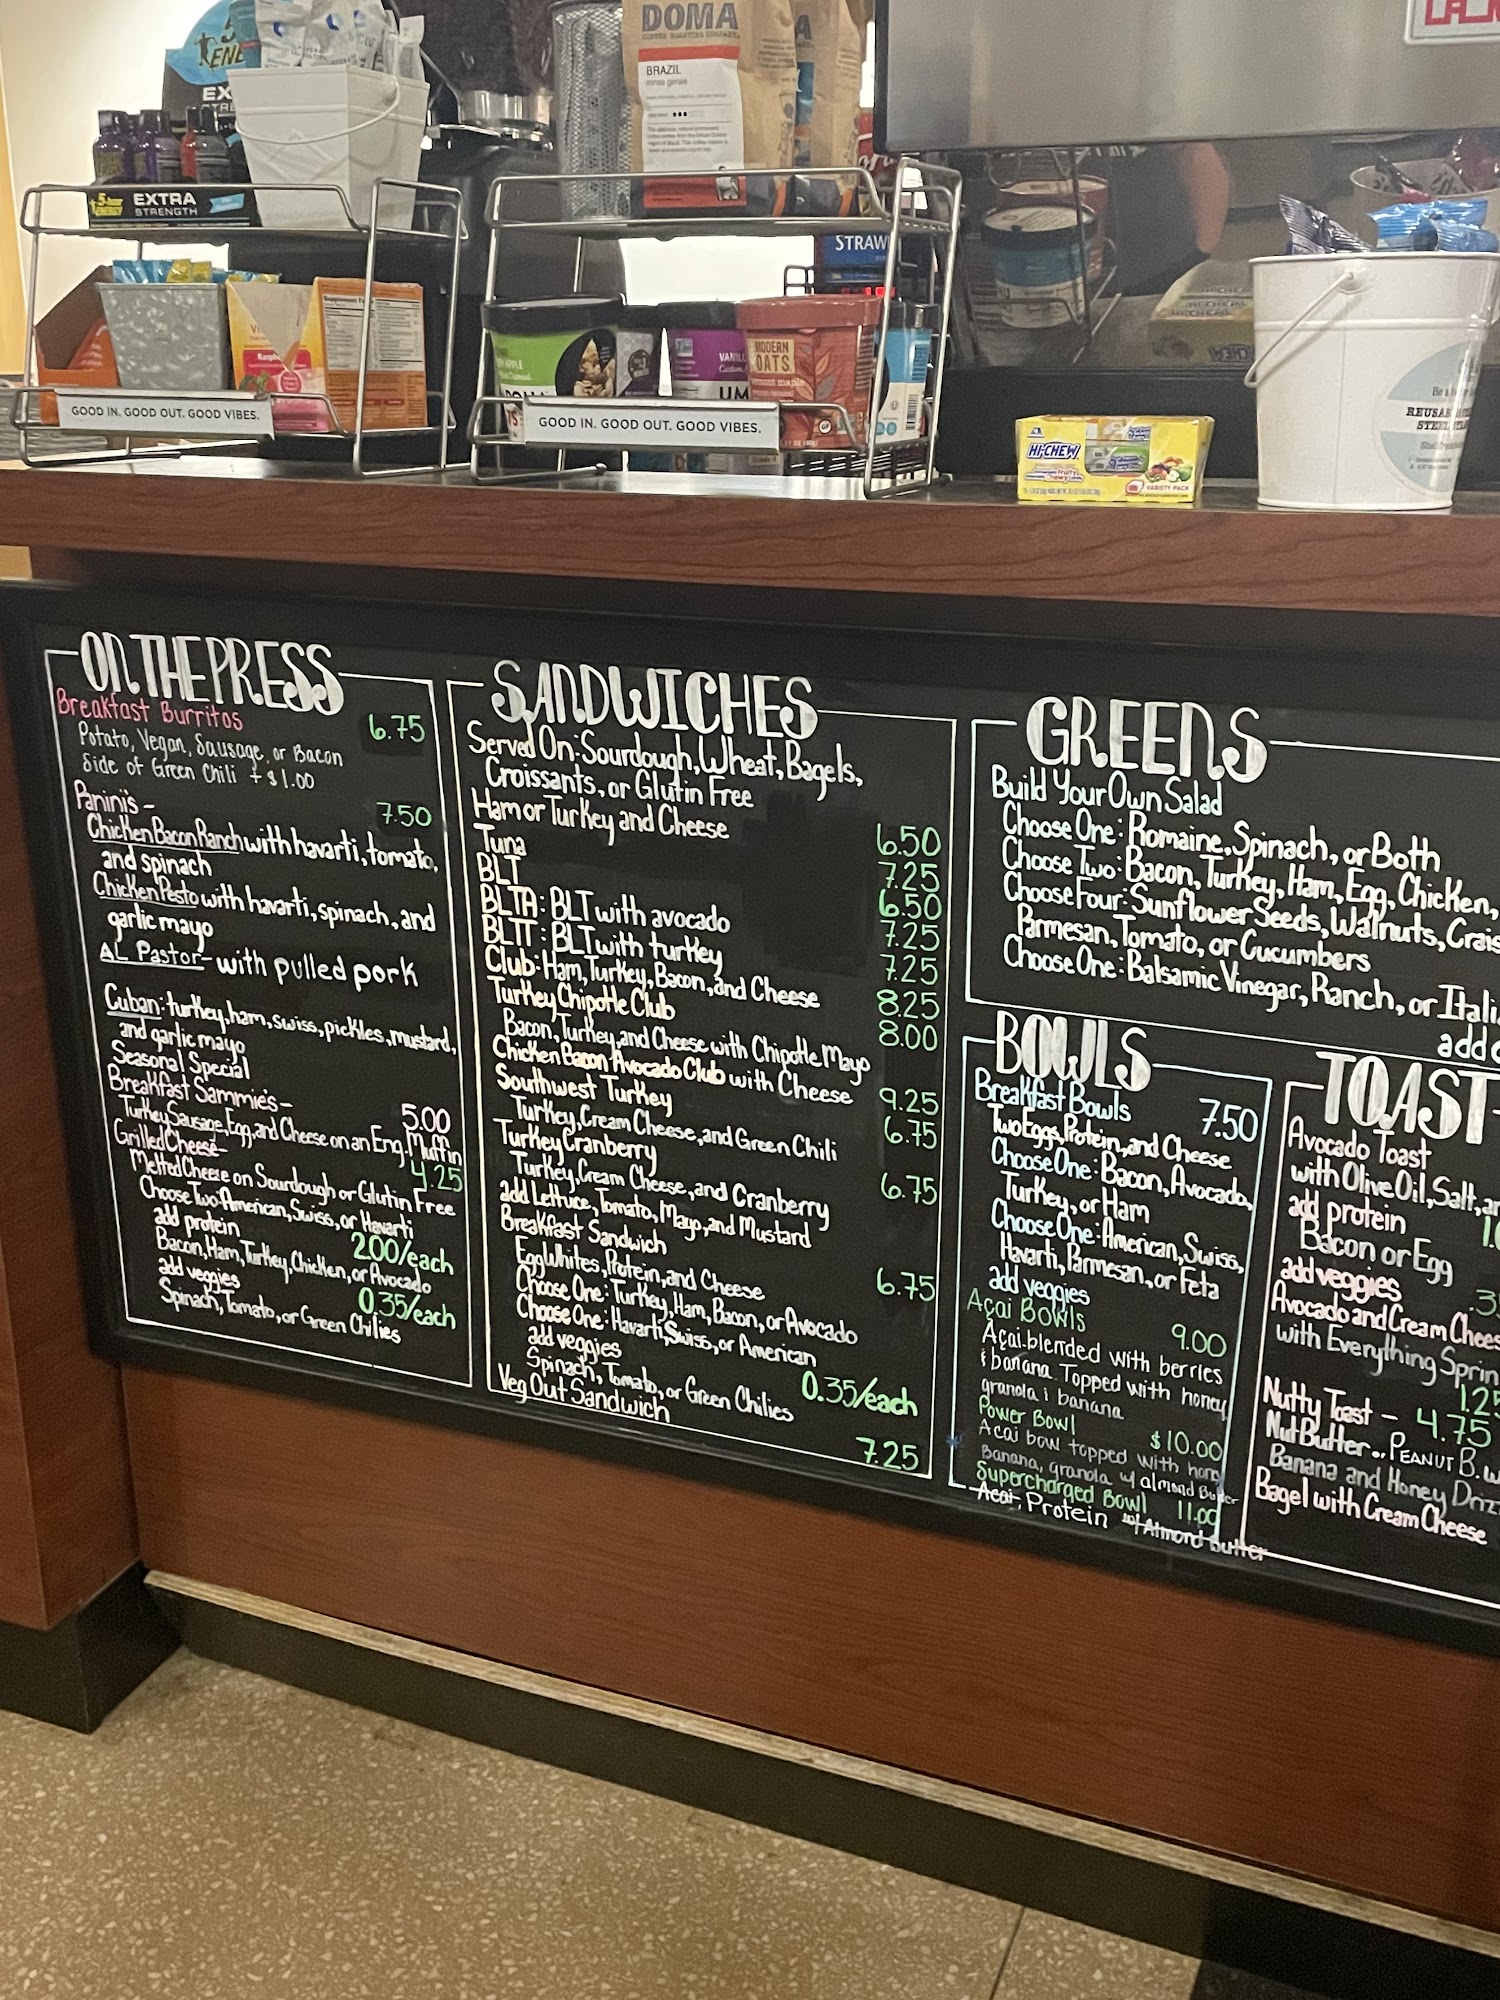 DOMA
COFFEE ROASTING COMPANY
BRAZIL
minas gerais
EXTRA
STRENGTH
STRAW
VANILL
UM
MODERN
OATS
GOOD IN. GOOD OUT. GOOD VIBES.
GOOD IN. GOOD OUT. GOOD VIBES.
HI-CHEW
VARIETY PACK
ON THE PRESS
Breakfast Burritos 6.75
Potato, Vegan, Sausage, or Bacon
Side of Green Chili + $1.00
Panini's - 7.50
Chicken Bacon Ranch with havarti, tomato,
and spinach
Chicken Pesto with havarti, spinach, and
garlic mayo
AL Pastor - with pulled pork
Cuban: turkey, ham, swiss, pickles, mustard,
and garlic mayo
Seasonal Special
Breakfast Sammie's - 5.00
Turkey Sausage, Egg, and Cheese on an Eng. Muffin
Grilled Cheese - 4.25
Melted Cheese on Sourdough or Glutin Free
Choose Two: American, Swiss, or Havarti
add protein 2.00/each
Bacon, Ham, Turkey, Chicken, or Avocado
add veggies 0.35/each
Spinach, Tomato, or Green Chilies
SANDWICHES
Served On: Sourdough, Wheat, Bagels,
Croissants, or Glutin Free
Ham or Turkey and Cheese 6.50
Tuna 7.25
BLT 6.50
BLTA: BLT with avocado 7.25
BLTT: BLT with turkey 7.25
Club: Ham, Turkey, Bacon, and Cheese 8.25
Turkey Chipotle Club 8.00
Bacon, Turkey, and Cheese with Chipotle Mayo
Chicken Bacon Avocado Club with Cheese 9.25
Southwest Turkey 6.75
Turkey, Cream Cheese, and Green Chili
Turkey Cranberry 6.75
Turkey, Cream Cheese, and Cranberry
add Lettuce, Tomato, Mayo, and Mustard
Breakfast Sandwich 6.75
Egg Whites, Protein, and Cheese
Choose One: Turkey, Ham, Bacon, or Avocado
Choose One: Havarti, Swiss, or American
add veggies 0.35/each
Spinach, Tomato, or Green Chilies
Veg Out Sandwich 7.25
GREENS
Build Your Own Salad
Choose One: Romaine, Spinach, or Both
Choose Two: Bacon, Turkey, Ham, Egg, Chicken,
Choose Four: Sunflower Seeds, Walnuts, Crais
Parmesan, Tomato, or Cucumbers
Choose One: Balsamic Vinegar, Ranch, or Itali
add
BOWLS
Breakfast Bowls 7.50
Two Eggs, Protein, and Cheese
Choose One: Bacon, Avocado,
Turkey, or Ham
Choose One: American, Swiss,
Havarti, Parmesan, or Feta
add veggies
Açai Bowls 9.00
Açai blended with berries
& banana. Topped with honey,
granola & banana
Power Bowl $10.00
Acai bowl topped with hon
Banana, granola w/ almond Butter
Supercharged Bowl 11.00
Acai, Protein w/ Almond Butter
TOAST
Avocado Toast
with Olive Oil, Salt, an
add protein 1.
Bacon or Egg
add veggies .3
Avocado and Cream Chees
with Everything Sprin
1.25
Nutty Toast - 4.75
Nut Butter.. PEANUT B. w
Banana and Honey Driz
Bagel with Cream Cheese